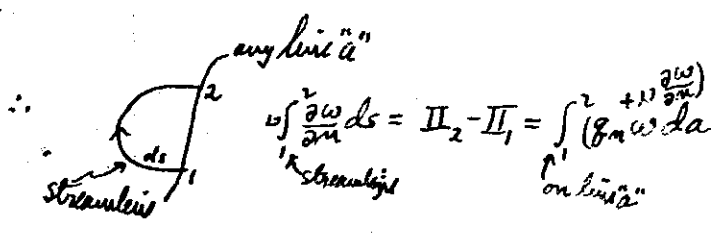 any line "a"
∴
2
ds
1
streamline
ν∫₁² ∂ω/∂n ds = II₂ - II₁ = ∫₁² (qₙω + ν ∂ω/∂n) da
streamline
on line "a"